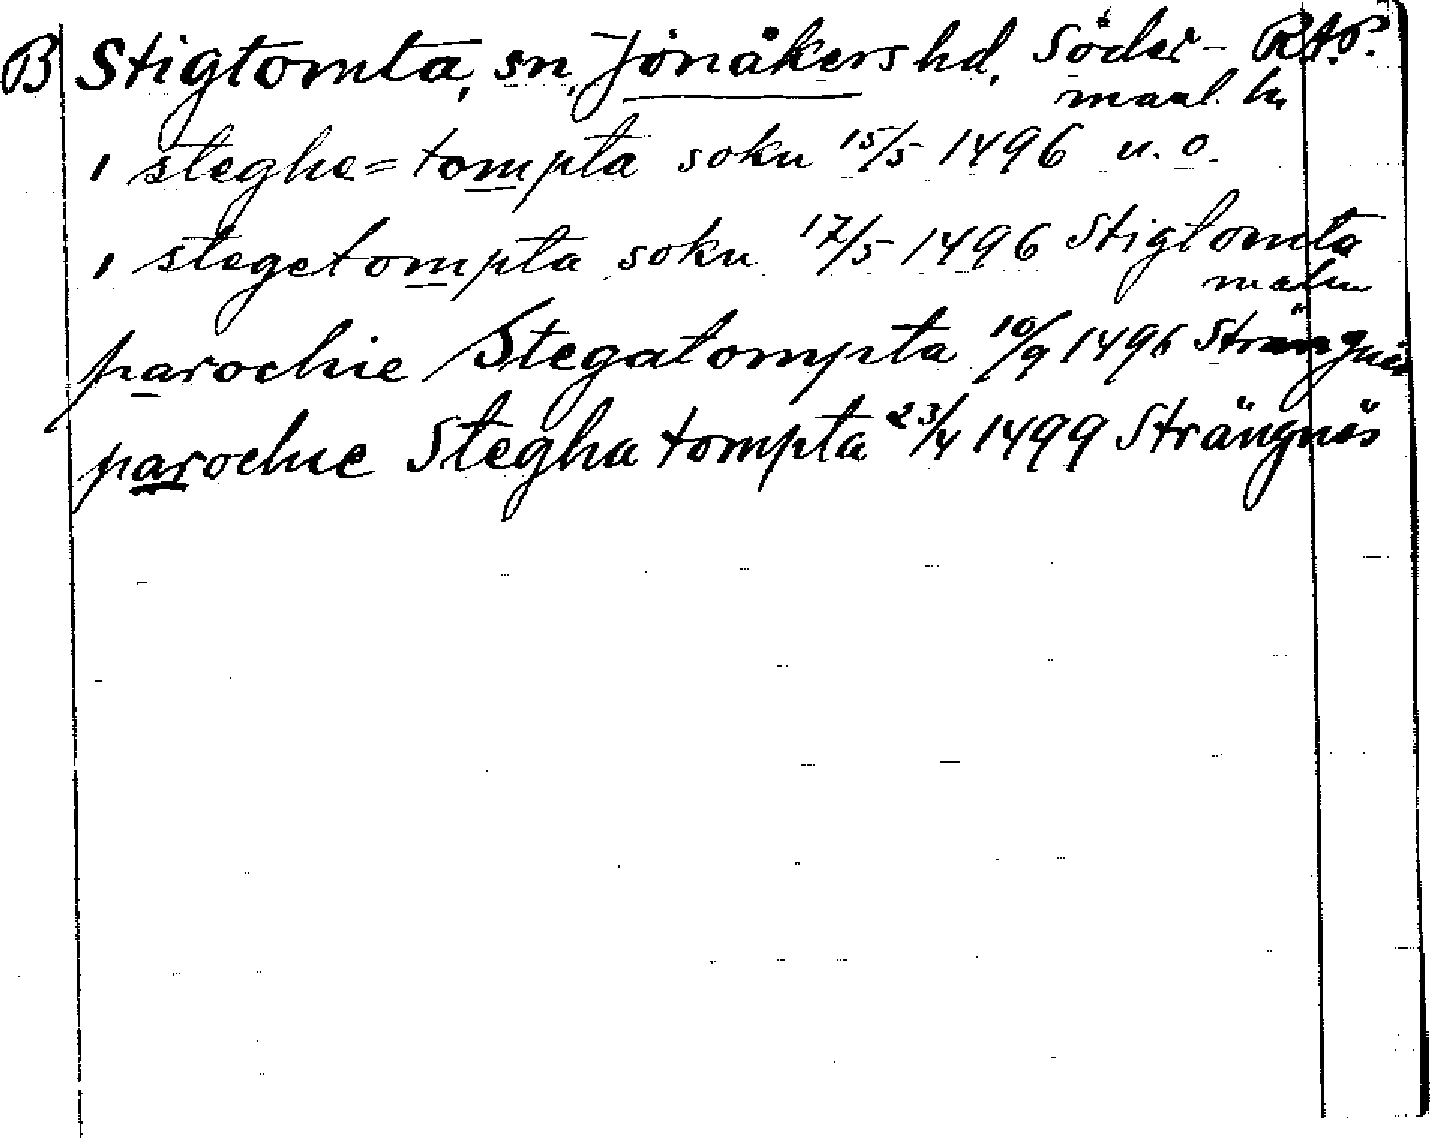 B Stigtomta, sn, Jönåkers hd. Söder- RAP.
manl. ln
i steghe=tompta soku 15/5 1496 u. o.
i stegetompta soku 17/5 1496 Stigtomta
malm
parochie Stegatompta 10/9 1496 Strängnäs
parochie Stegha tompta 23/4 1499 Strängnäs